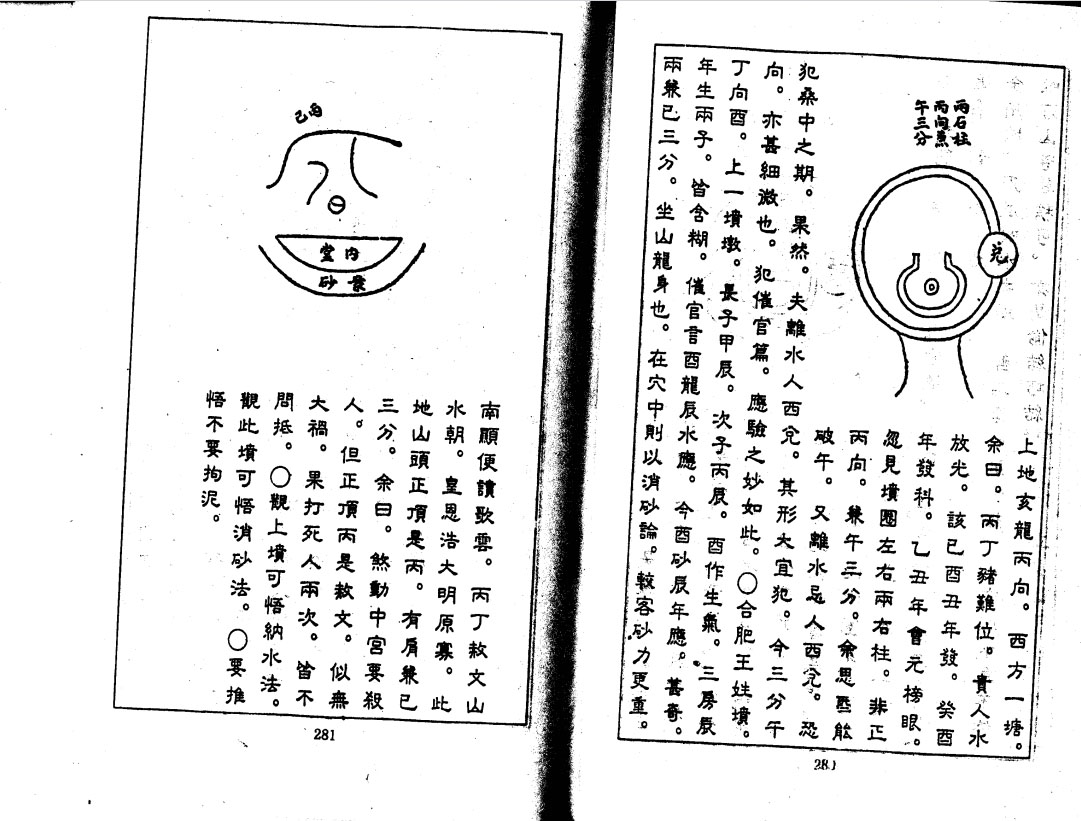 兩石柱
丙向兼
午三分
兌
上地亥龍丙向。西方一塘。
余曰。丙丁豬難位。貴人水
放光。該已酉丑年發。癸酉
年發科。乙丑年會元榜眼。
忽見墳圈左右兩右柱。非正
丙向。兼午三分。余思
破午。又離水忌人西兌。恐
犯桑中之期。果然。夫離水人西兌。其形大宜犯。今三分午
向。亦甚細微也。犯催官篇。應驗之妙如此。〇合肥王姓墳。
丁向酉。上一墳墩。長子甲辰。次子丙辰。酉作生氣。三房辰
年生兩子。皆含糊。催官言酉龍辰水應。今酉砂辰年應。甚奇。
兩兼巳三分。坐山龍身也。在穴中則以消砂論。較客砂力更重。
280
巳丙
內堂
案砂
南顧便讀歌雲。丙丁赦文山
水朝。皇恩浩大明原寡。此
地山頭正頂是丙。有肩兼已
三分。余曰。煞動中宮要殺
人。但正頂丙是赦文。似無
大禍。果打死人兩次。皆不
問抵。〇觀上墳可悟納水法。
觀此墳可悟消砂法。〇要推
悟不要拘泥。
281